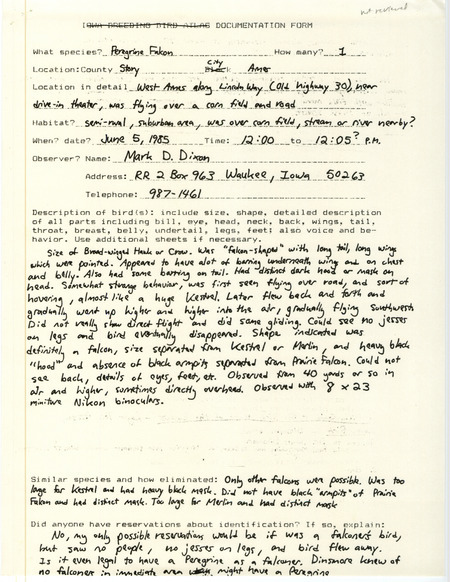 not reviewed
IOWA BREEDING BIRD ATLAS DOCUMENTATION FORM
What species? Peregrine Falcon How many? 1
Location: County Story City Ames
Location in detail West Ames along Lincoln Way (Old highway 30), near
drive-in theater, was flying over a corn field and road
Habitat? semi-rural, suburban area, was over corn field, stream or river nearby?
When? date? June 5, 1985 Time: 12:00 to 12:05? P.M.
Observer? Name: Mark D. Dixon
Address: RR 2 Box 963 Waukee, Iowa 50263
Telephone: 987-1461
Description of bird(s): include size, shape, detailed description
of all parts including bill, eye, head, neck, back, wings, tail,
throat, breast, belly, undertail, legs, feet; also voice and be-
havior. Use additional sheets if necessary.
Size of Broad-winged Hawk or Crow. Was "falcon-shaped" with long tail, long wings
which were pointed. Appeared to have alot of barring underneath, wing and on chest
and belly. Also had some barring on tail. Had distinct dark hood or mask on
head. Somewhat strange behavior, was first seen flying over road, and sort of
hovering, almost like a huge Kestrel. Later flew back and forth and
gradually went up higher and higher into the air, gradually flying Southwest.
Did not really show direct flight and did some gliding. Could see no jesses
on legs and bird eventually disappeared. Shape indicated was
definitely a falcon, size separated from Kestrel or Merlin, and heavy black
"hood" and absence of black armpits separated from Prairie Falcon. Could not
see back, details of eyes, feet, etc. Observed from 40 yards or so in
air and higher, sometimes directly overhead. Observed with 8 x 23
miniture Nikon binoculars.
Similar species and how eliminated: Only other falcons were possible. Was too
large for Kestrel and had heavy black mask. Did not have black "armpits" of Prairie
Falcon and had distinct mask. Too large for Merlin and had distinct mask
Did anyone have reservations about identification? If so, explain:
No, my only possible reservations would be if was a falconer's bird,
but saw no people, no jesses on legs, and bird flew away.
Is it even legal to have a Peregrine as a falconer. Dinsmore knew of
no falconers in immediate area might have a Peregrine